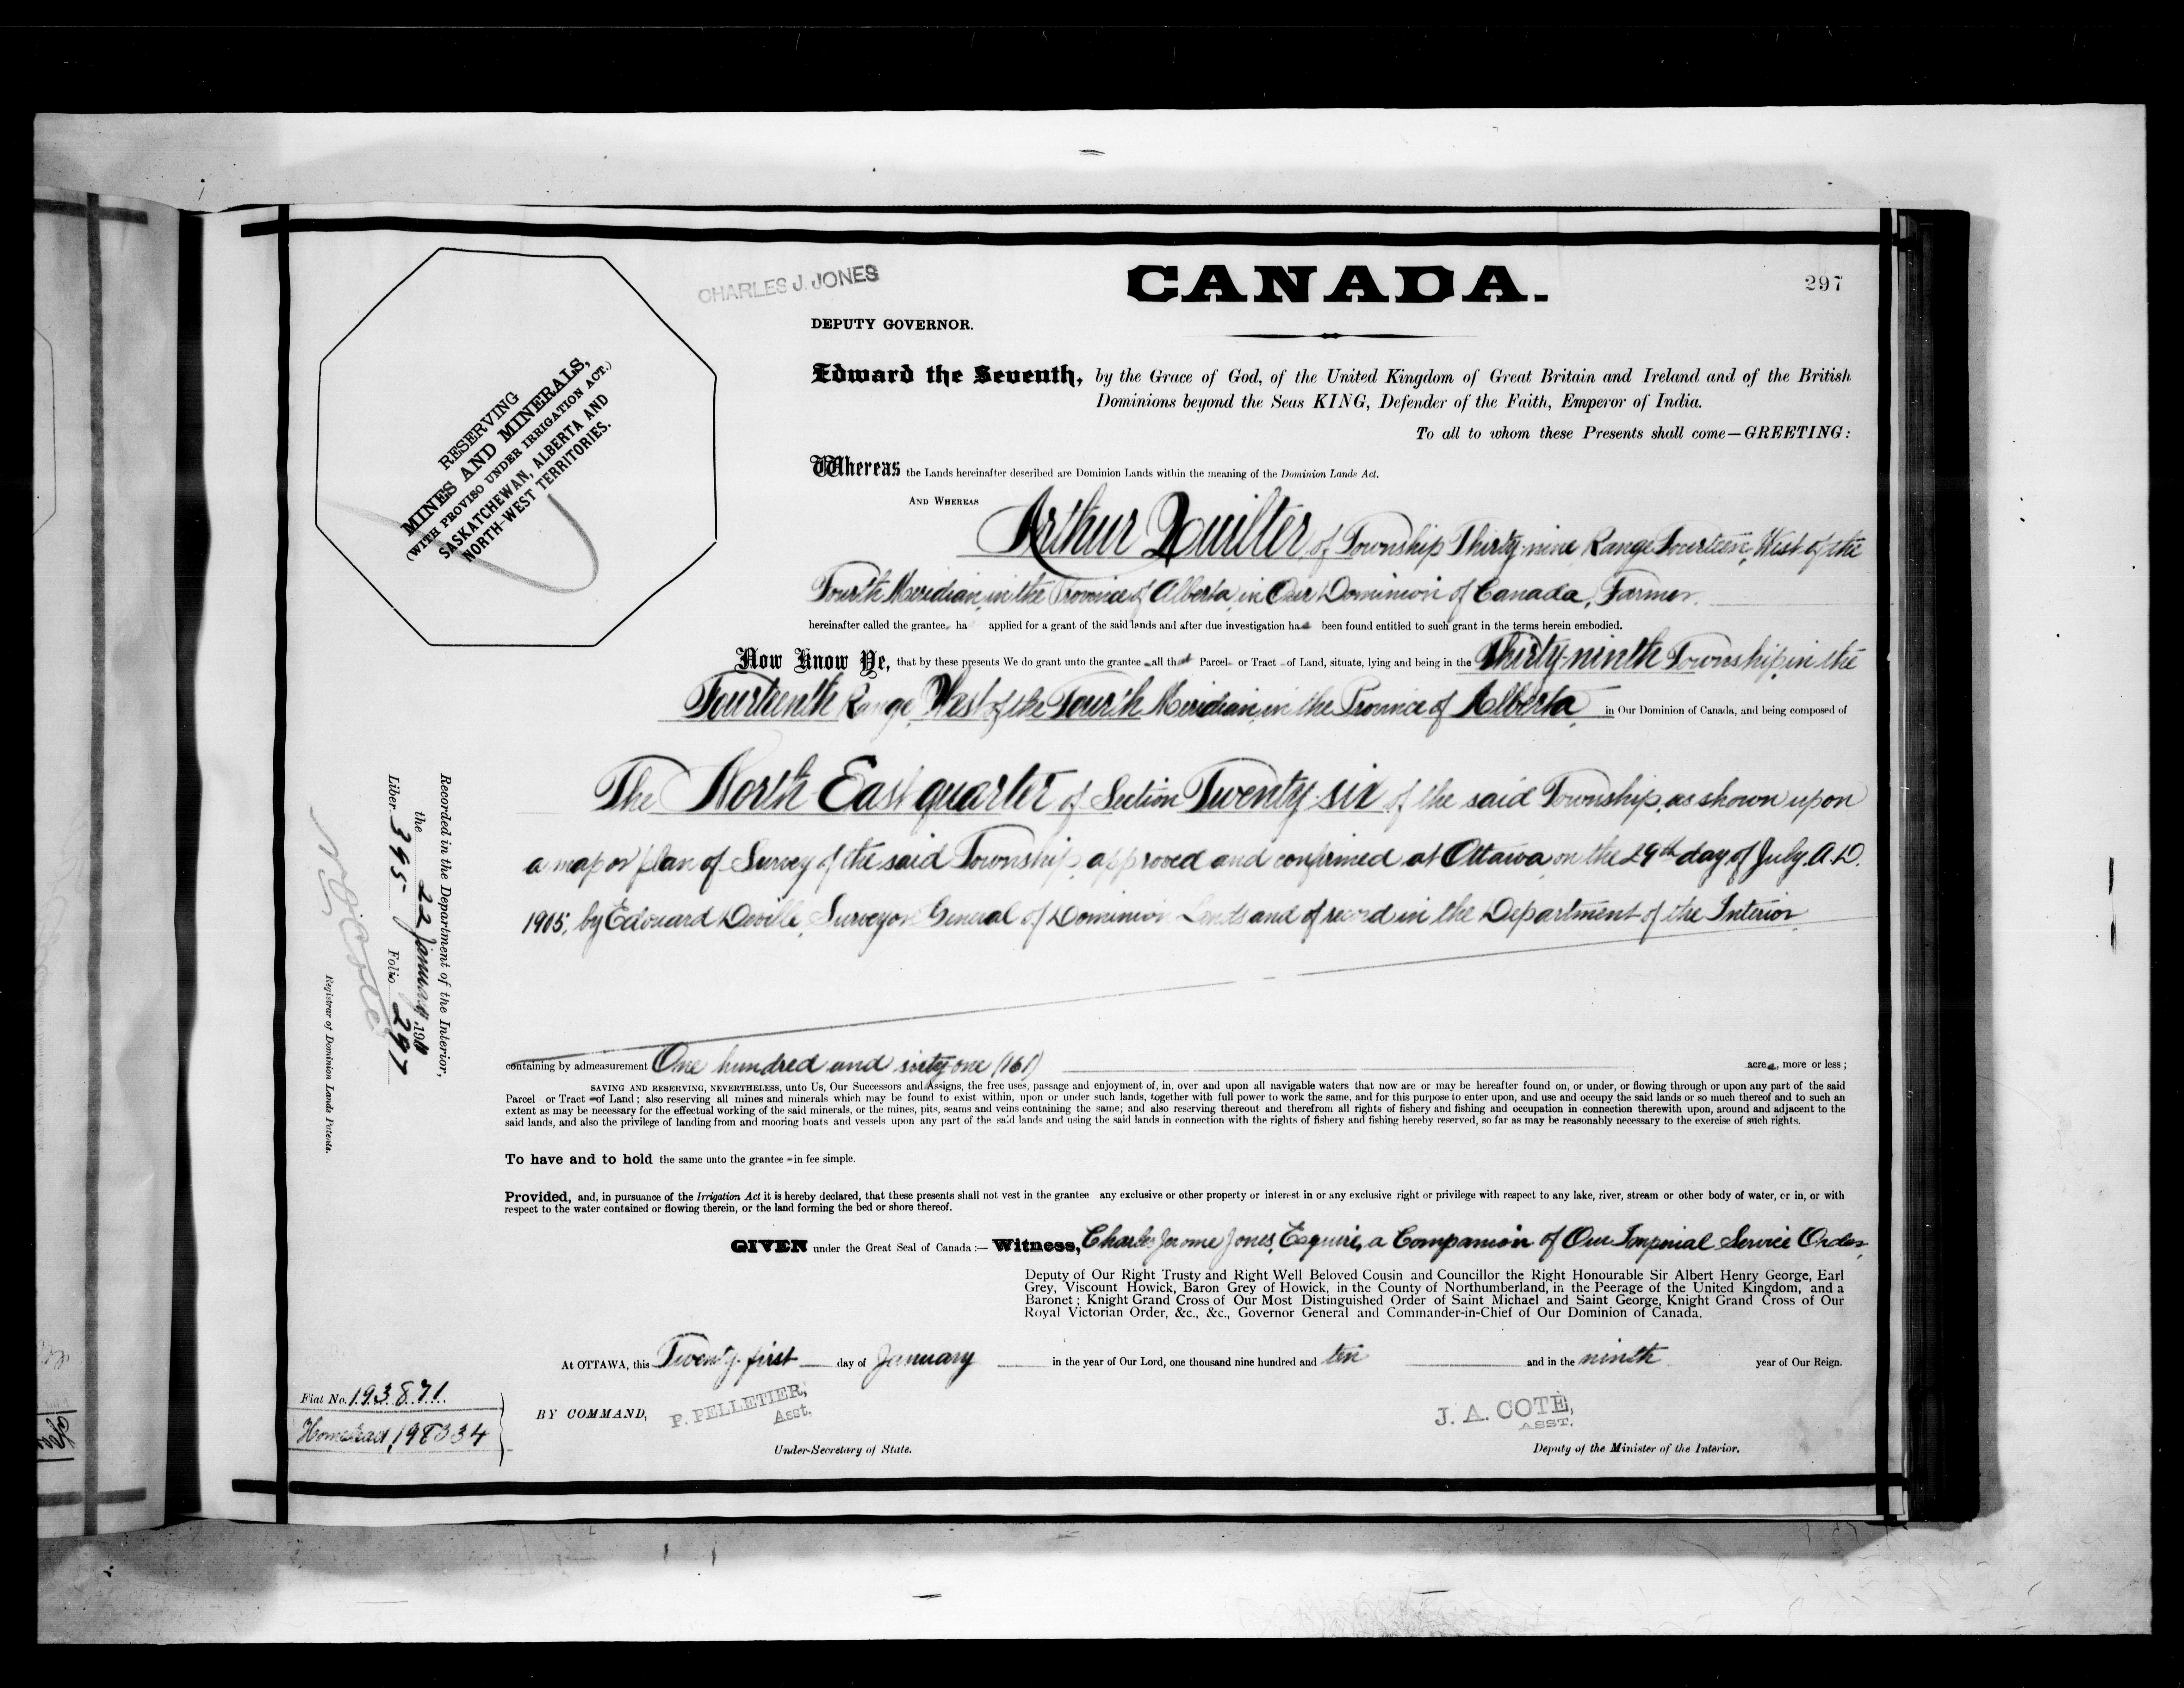 CHARLES J. JONES
CANADA.
297
DEPUTY GOVERNOR.
RESERVING
MINES AND MINERALS,
(WITH PROVISO UNDER IRRIGATION ACT.)
SASKATCHEWAN, ALBERTA AND
NORTH-WEST TERRITORIES.
Edward the Seventh, by the Grace of God, of the United Kingdom of Great Britain and Ireland and of the British
Dominions beyond the Seas KING, Defender of the Faith, Emperor of India.
To all to whom these Presents shall come—GREETING:
Whereas the Lands hereinafter described are Dominion Lands within the meaning of the Dominion Lands Act.
AND WHEREAS Arthur Quilter, of Township Thirty-nine, Range Fourteen, West of the
Fourth Meridian, in the Province of Alberta, in Our Dominion of Canada, Farmer.
hereinafter called the grantee, ha applied for a grant of the said lands and after due investigation has been found entitled to such grant in the terms herein embodied.
Now Know Ye, that by these presents We do grant unto the grantee all that Parcel or Tract of Land, situate, lying and being in the Thirty-ninth Township, in the
Fourteenth Range, West of the Fourth Meridian, in the Province of Alberta, in Our Dominion of Canada, and being composed of
The North East quarter of Section Twenty-six, of the said Township, as shown upon
a map or plan of Survey of the said Township, approved and confirmed at Ottawa, on the 29th day of July, A.D.
1905, by Edouard Deville, Surveyor General of Dominion Lands and of record in the Department of the Interior.
containing by admeasurement One hundred and sixty-one (161) acres, more or less;
SAVING AND RESERVING, NEVERTHELESS, unto Us, Our Successors and Assigns, the free uses, passage and enjoyment of, in, over and upon all navigable waters that now are or may be hereafter found on, or under, or flowing through or upon any part of the said
Parcel or Tract of Land; also reserving all mines and minerals which may be found to exist within, upon or under such lands, together with full power to work the same, and for this purpose to enter upon, and use and occupy the said lands or so much thereof and to such an
extent as may be necessary for the effectual working of the said minerals, or the mines, pits, seams and veins containing the same; and also reserving thereout and therefrom all rights of fishery and fishing and occupation in connection therewith upon, around and adjacent to the
said lands, and also the privilege of landing from and mooring boats and vessels upon any part of the said lands and using the said lands in connection with the rights of fishery and fishing hereby reserved, so far as may be reasonably necessary to the exercise of such rights.
To have and to hold the same unto the grantee in fee simple.
Provided, and, in pursuance of the Irrigation Act it is hereby declared, that these presents shall not vest in the grantee any exclusive or other property or interest in or any exclusive right or privilege with respect to any lake, river, stream or other body of water, or in, or with
respect to the water contained or flowing therein, or the land forming the bed or shore thereof.
GIVEN under the Great Seal of Canada:— Witness, Charles Jerome Jones, Esquire, a Companion of Our Imperial Service Order,
Deputy of Our Right Trusty and Right Well Beloved Cousin and Councillor the Right Honourable Sir Albert Henry George, Earl
Grey, Viscount Howick, Baron Grey of Howick, in the County of Northumberland, in the Peerage of the United Kingdom, and a
Baronet; Knight Grand Cross of Our Most Distinguished Order of Saint Michael and Saint George, Knight Grand Cross of Our
Royal Victorian Order, &c., &c., Governor General and Commander-in-Chief of Our Dominion of Canada.
At OTTAWA, this Twenty-first day of January in the year of Our Lord, one thousand nine hundred and ten and in the ninth year of Our Reign.
BY COMMAND,
P. PELLETIER,
Asst.
Under-Secretary of State.
J. A. COTÉ,
ASST.
Deputy of the Minister of the Interior.
Recorded in the Department of the Interior,
the 22 January, 1910
Liber 395 Folio 297
Registrar of Dominion Lands Patents.
Fiat No. 193871.
Homestead 198334